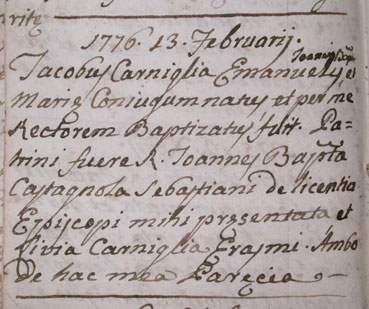 1776. 13. Februarij.
Jacobus Carniglia Emanuelis Joannis et
Marię Coniugum natus et per me
Rectorem Baptizatus fuit. Pa-
trini fuere R. Joannes Bapta
Castagnola Sebastiani de licentia
Episcopi mihi pręsentata et
Livia Carniglia Erasmi. Ambo
de hac mea Paręcia